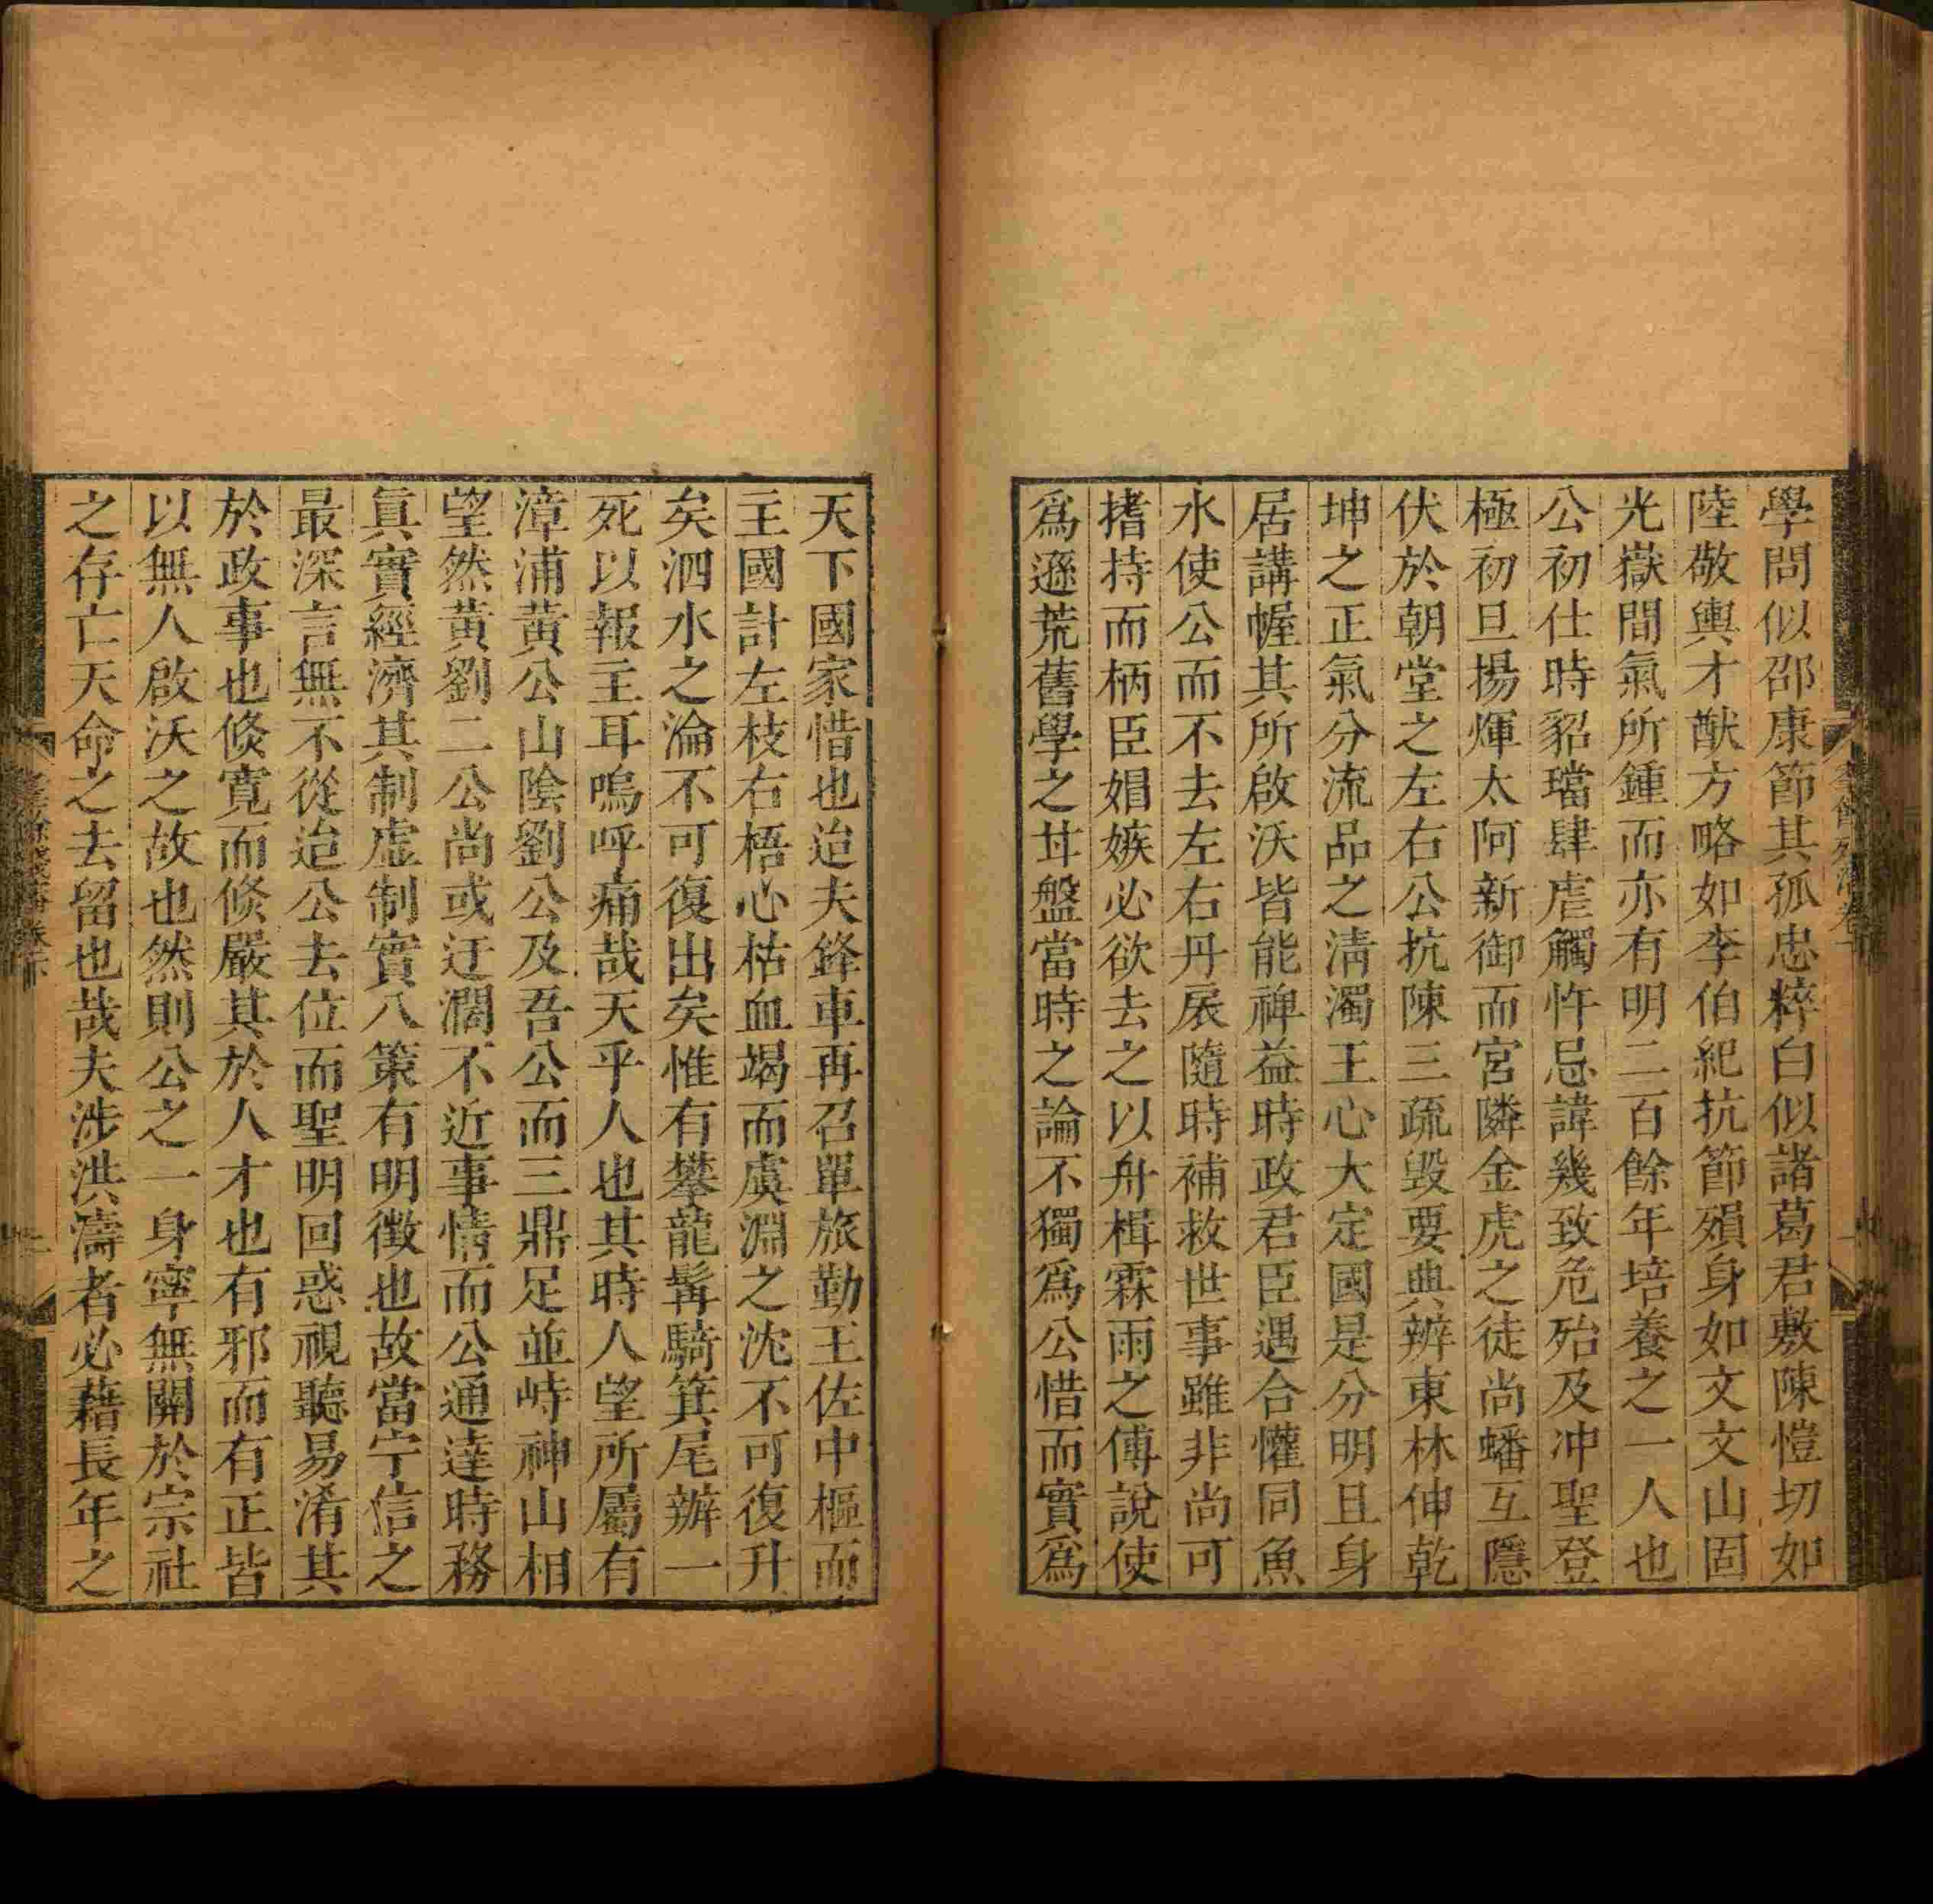 學問似邵康節其孤忠粹白似諸葛君敷陳愷切如
陸敬輿才猷方略如李伯紀抗節殞身如文文山固
光嶽間氣所鍾而亦有明二百餘年培養之一人也
公初仕時貂璫肆虐觸忤忌諱幾致危殆及冲聖登
極初旦揚煇太阿新御而宮隣金虎之徒尚蟠互隱
伏於朝堂之左右公抗陳三疏毀要典辨東林伸乾
坤之正氣分流品之淸濁王心大定國是分明且身
居講幄其所啟沃皆能裨益時政君臣遇合懽同魚
水使公而不去左右丹扆隨時補救世事雖非尚可
搘持而柄臣娼嫉必欲去之以舟楫霖雨之傅說使
爲遜荒舊學之甘盤當時之論不獨爲公惜而實爲
天下國家惜也迨夫鋒車再召單旅勤王佐中樞而
主國計左枝右梧心枯血竭而虞淵之沈不可復升
矣泗水之淪不可復出矣惟有攀龍髯騎箕尾辦一
死以報主耳嗚呼痛哉天乎人也其時人望所屬有
漳浦黃公山陰劉公及吾公而三鼎足並峙神山相
望然黃劉二公尚或迂濶不近事情而公通達時務
眞實經濟其制虛制實八策有明徵也故當宁信之
最深言無不從迨公去位而聖明回惑視聽易淆其
於政事也倐寛而倐嚴其於人才也有邪而有正皆
以無人啟沃之故也然則公之一身寧無關於宗社
之存亡天命之去留也哉夫涉洪濤者必藉長年之